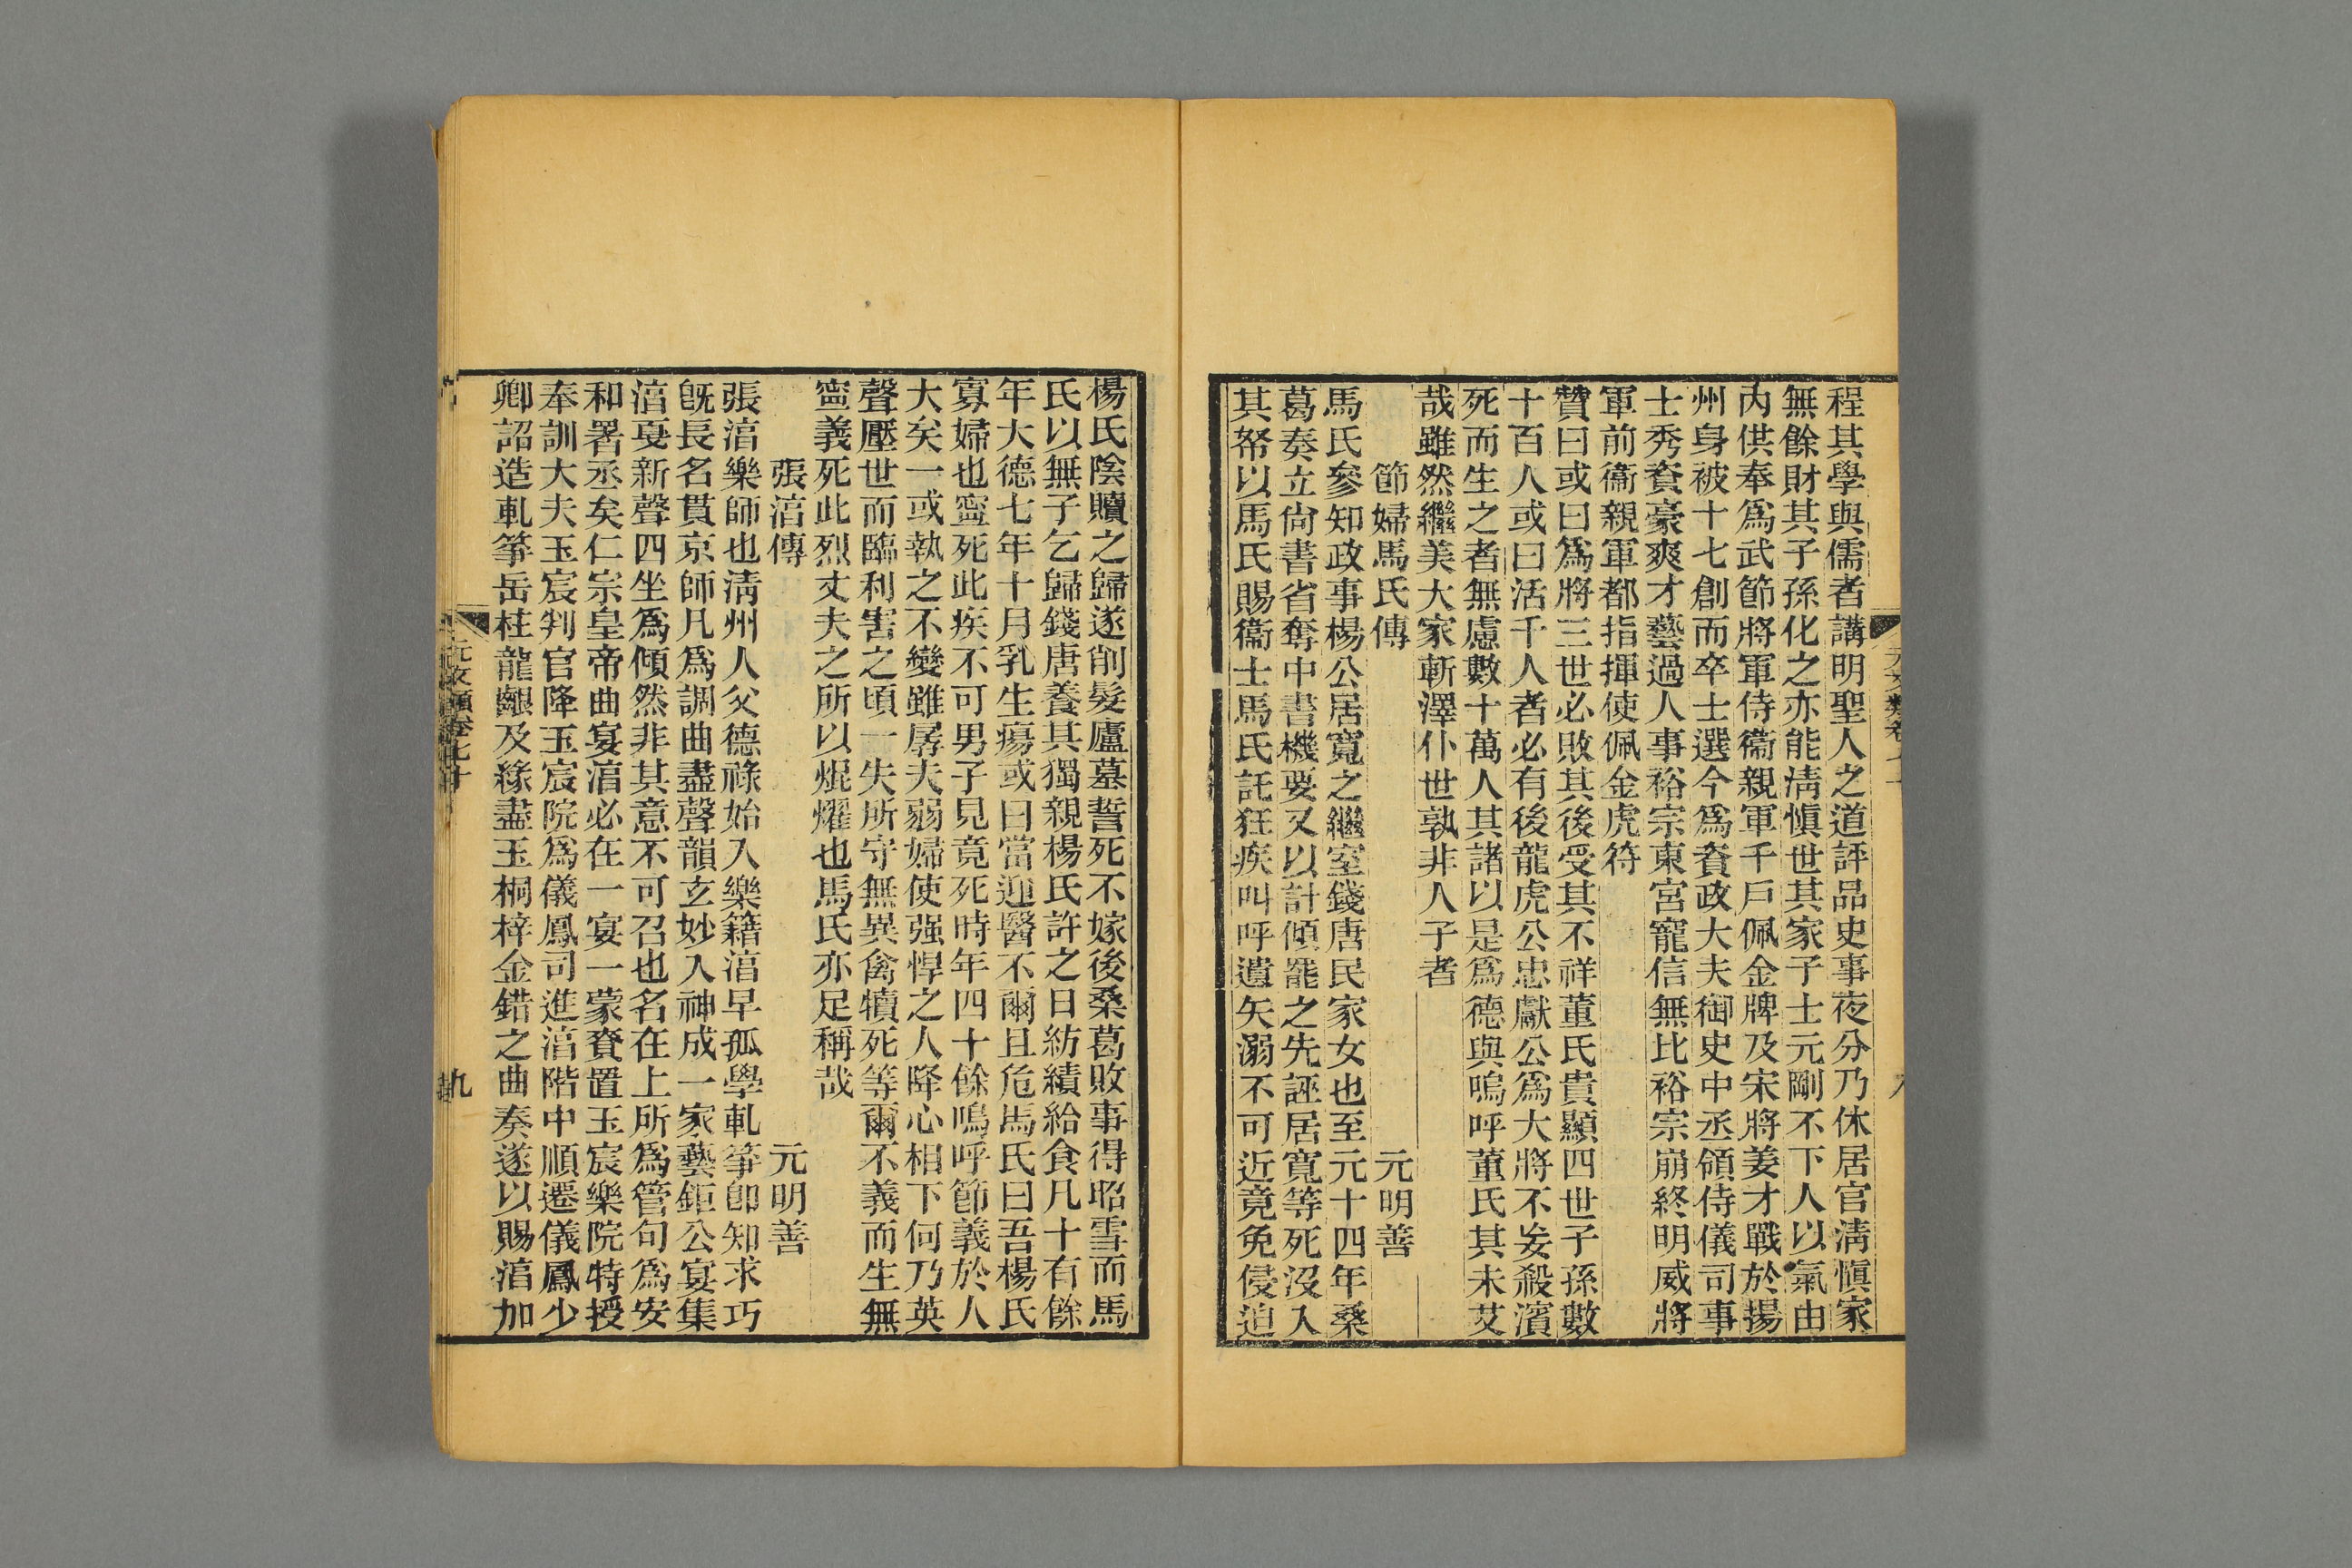 程其學與儒者講明聖人之道評品史事夜分乃休居官淸愼家
無餘財其子孫化之亦能淸愼世其家子士元剛不下人以氣由
內供奉爲武節將軍侍衞親軍千戶佩金牌及宋將姜才戰於揚
州身被十七創而卒士選今爲資政大夫御史中丞領侍儀司事
士秀資豪爽才藝過人事裕宗東宮寵信無比裕宗崩終明威將
軍前衞親軍都指揮使佩金虎符
贊曰或曰爲將三世必敗其後受其不祥董氏貴顯四世子孫數
十百人或曰活千人者必有後龍虎公忠獻公爲大將不妄殺濱
死而生之者無慮數十萬人其諸以是爲德與嗚呼董氏其未艾
哉雖然繼美大家斬澤仆世孰非人子者
節婦馬氏傳 元明善
馬氏參知政事楊公居寬之繼室錢唐民家女也至元十四年桑
葛奏立尙書省奪中書機要又以計傾罷之先誣居寬等死沒入
其帑以馬氏賜衞士馬氏託狂疾叫呼遺矢溺不可近竟免侵迫
楊氏陰贖之歸遂削髮廬墓誓死不嫁後桑葛敗事得昭雪而馬
氏以無子乞歸錢唐養其獨親楊氏許之日紡績給食凡十有餘
年大德七年十月乳生瘍或曰當迎醫不爾且危馬氏曰吾楊氏
寡婦也寧死此疾不可男子見竟死時年四十餘嗚呼節義於人
大矣一或執之不變雖孱夫弱婦使强悍之人降心相下何乃英
聲壓世而臨利害之頃一失所守無異禽犢死等爾不義而生無
寧義死此烈丈夫之所以焜燿也馬氏亦足稱哉
張淯傳 元明善
張淯樂師也淸州人父德祿始入樂籍淯早孤學軋箏卽知求巧
旣長名貫京師凡爲調曲盡聲韻玄妙入神成一家藝鉅公宴集
淯戛新聲四坐爲傾然非其意不可召也名在上所爲管句爲安
和署丞矣仁宗皇帝曲宴淯必在一宴一蒙資置玉宸樂院特授
奉訓大夫玉宸判官降玉宸院爲儀鳳司進淯階中順遷儀鳳少
卿詔造軋箏岳柱龍齦及緣盡玉桐梓金錯之曲奏遂以賜淯加
元文類卷七十 九